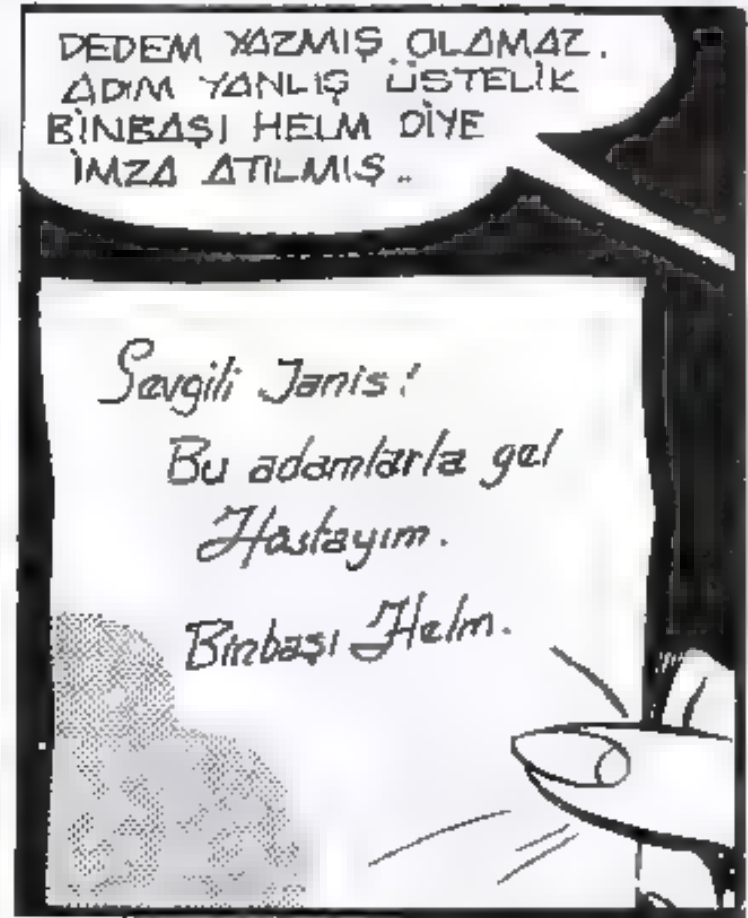 DEDEM YAZMIŞ OLAMAZ.
ADIM YANLIŞ ÜSTELİK
BİNBAŞI HELM DİYE
İMZA ATILMIŞ..
Sevgili Janis!
Bu adamlarla gel
Hastayım.
Binbaşı Helm.